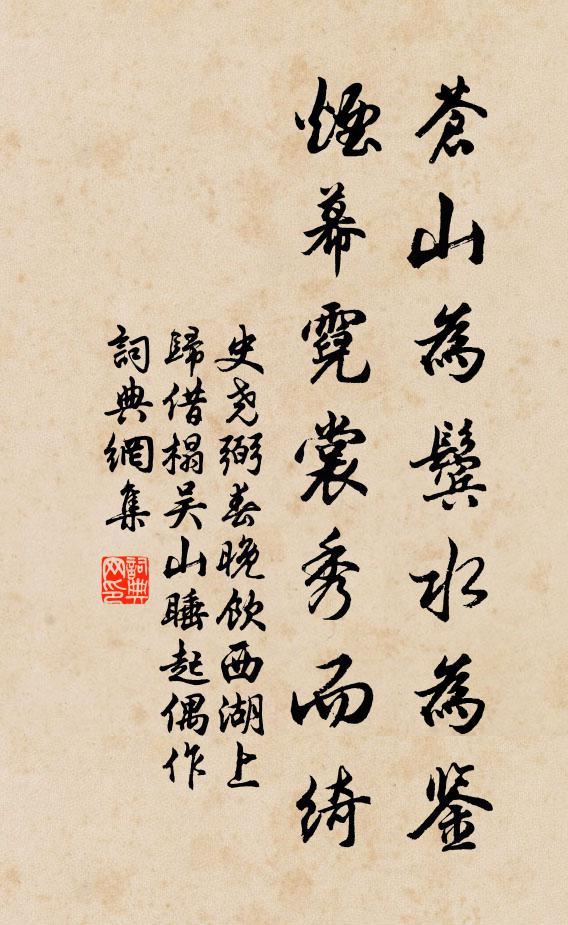 蒼山為鬢水為鉴
煙幕霓裳秀而綺
史尧弼春晚飲西湖上
歸借榻吴山睡起偶作
詞典網集
詞典网印